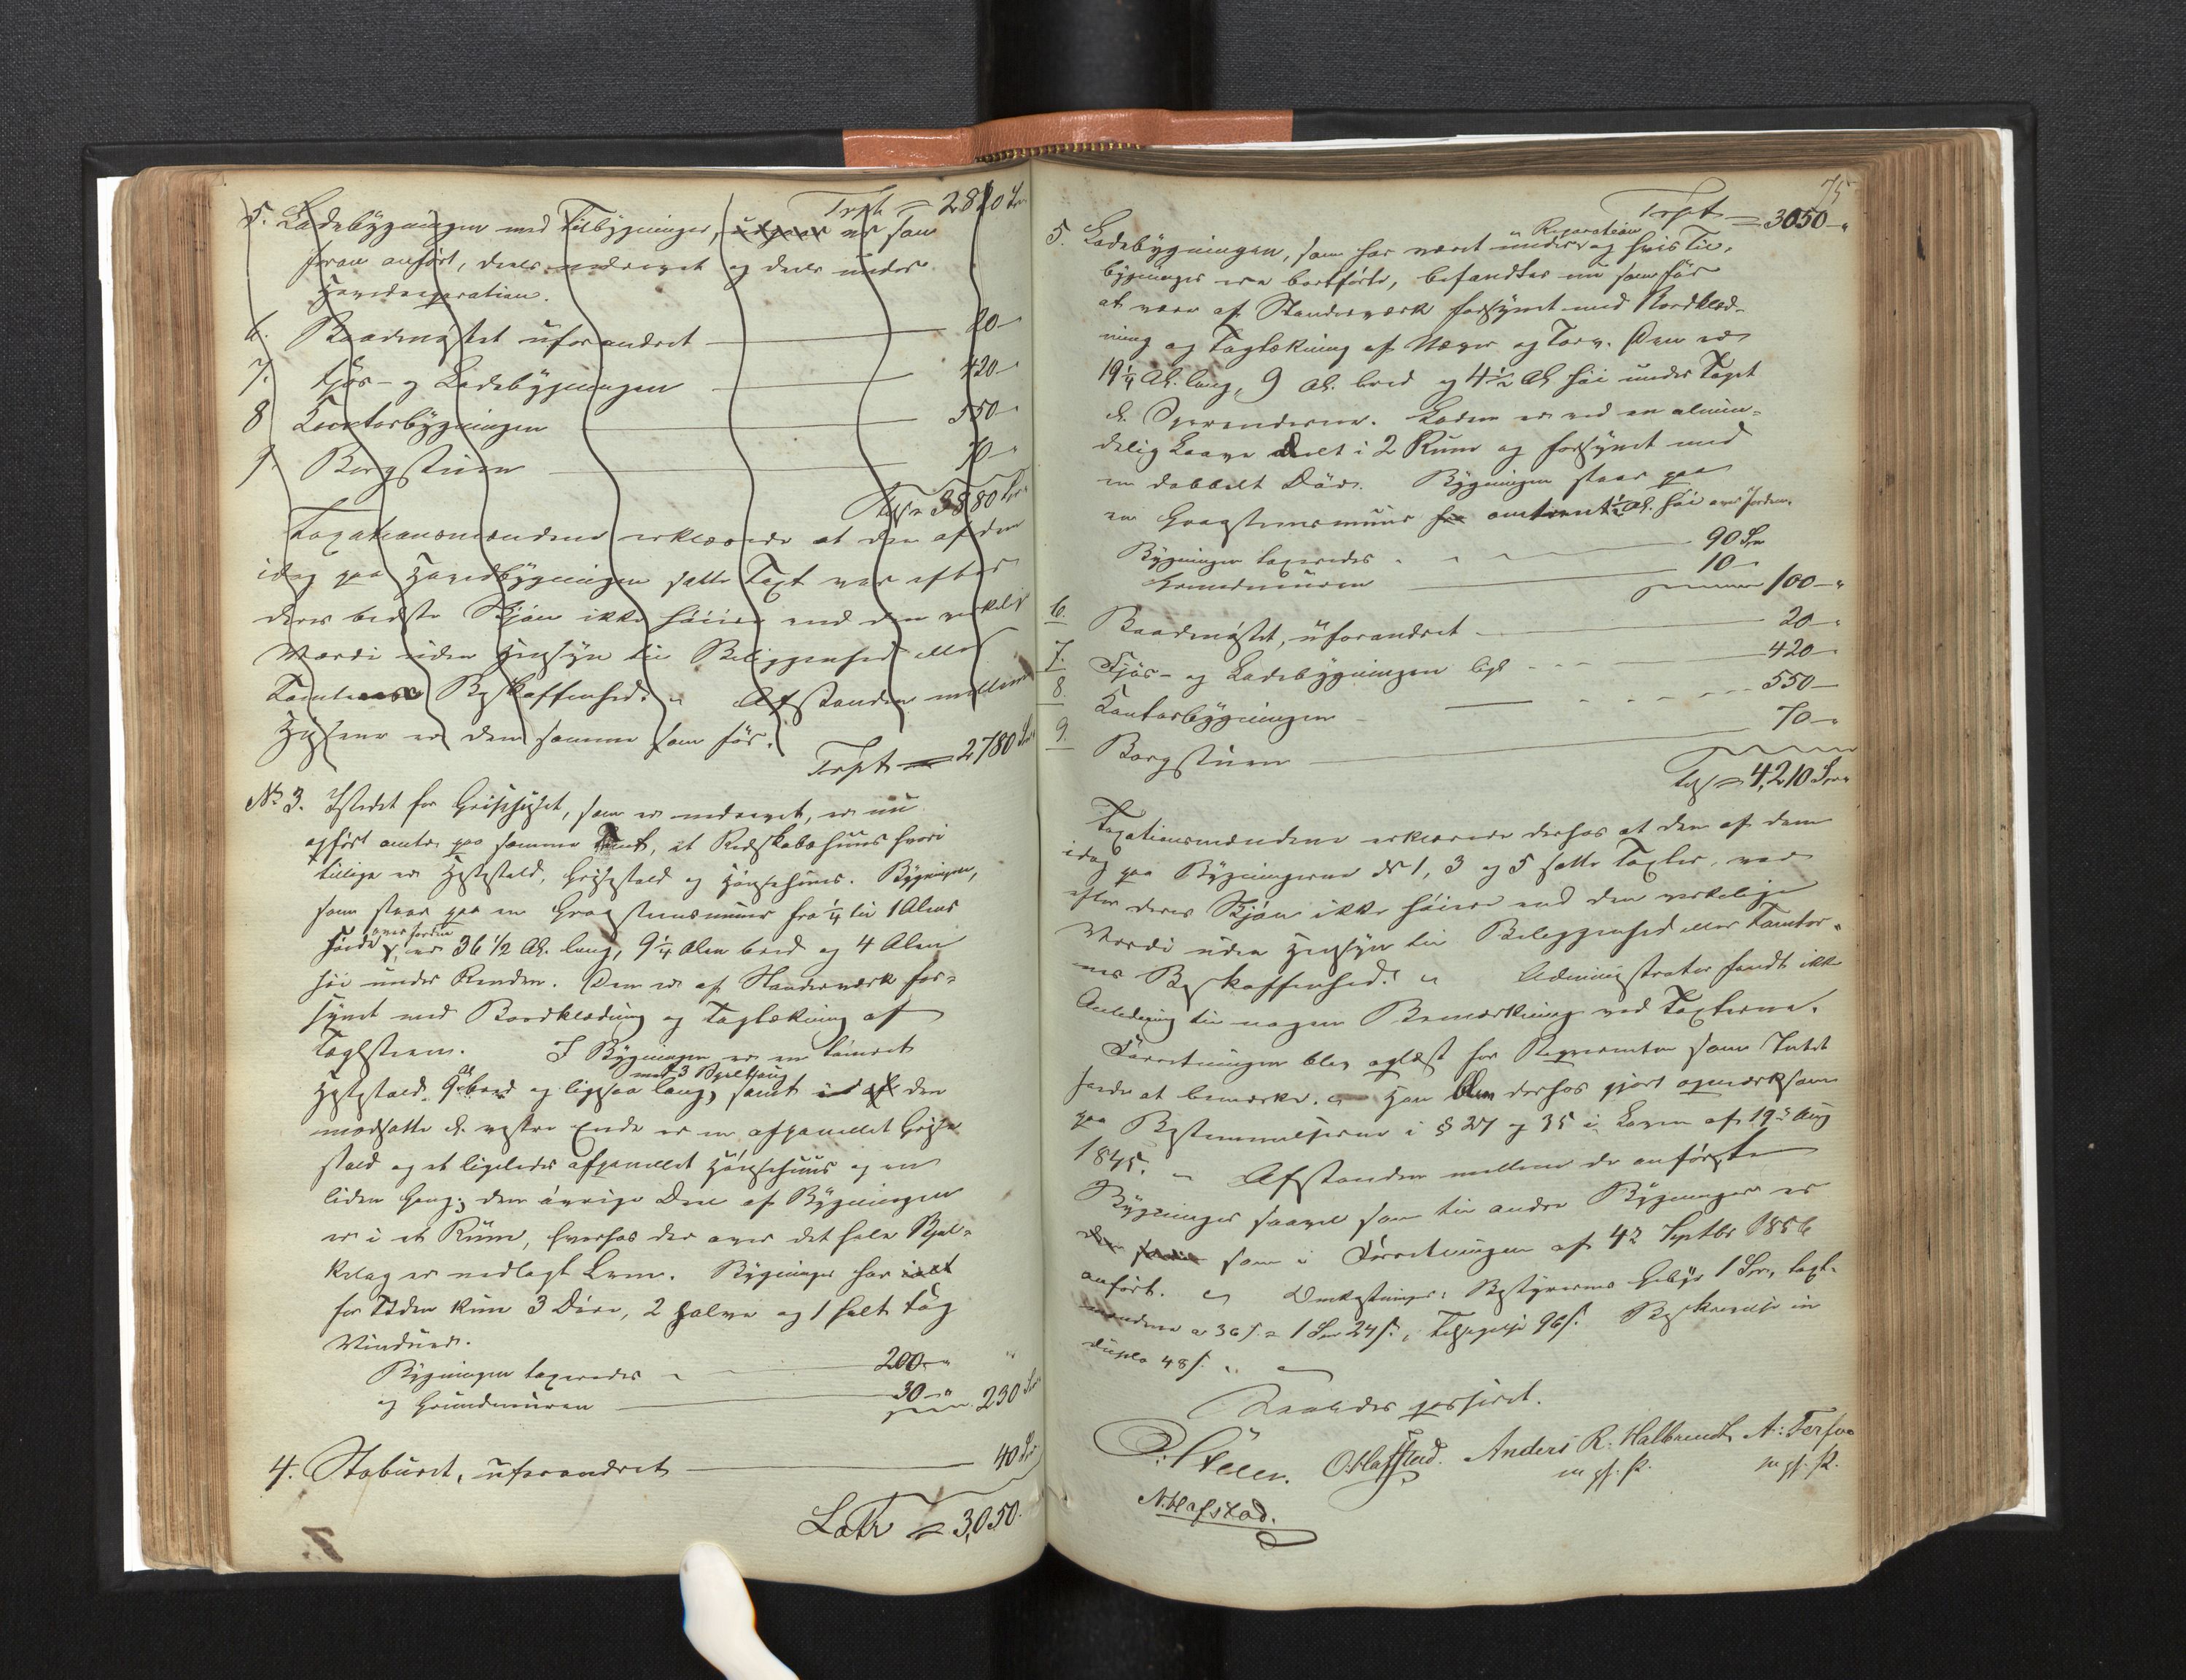 Trspt = 2820 Spd
5. Ladebygningen med Tilbygninger, er som
foran anført, deels nedrevet og deels under
Hovedreparation.
6. Baadnøstet uforandret 20 -
7. Fjøs- og Ladebygningen 420 -
8 Contorbygningen 550 -
9. Borgstuen 70 -
Tils = 3880 Spd
Taxationsmændene erklærede at den af dem
idag paa Hovedbygningen satte Taxt var efter
deres bedste Skjøn ikke høiere end den virkelige
Værdi uden Hensyn til Beliggenhed eller
Tomternes Beskaffenhed. Afstanden mellem
Husene er den samme som før.
Trspt = 2780 Spd
No 3. Istedet for Grisehuset, som er nedrevet, er nu
opført omtr. paa samme Tomt, et Redskabshuus hvori
tillige er Hestestald, Grisestald og Hønsehuus. Bygningen,
som staar paa en Graasteensmuur fra 1/4 til 1 Alens
Høide over Jorden, er 36 1/2 Al. lang, 9 1/4 Alen bred og 4 Alen
høi under Renden. Den er af Standerværk for-
synet med Bordklædning og Taglækning af
Taglsteen. I Bygningen er en tømret
Hestestald, 9 Al. bred og ligesaa lang, med 3 Spiltoug samt i den
modsatte d. vestre Ende er en afpanellet Grise
stald og et ligeledes afpanellet Hønsehuus og en
liden Gang; den øvrige Deel af Bygningen
er i et Rum, hvorhos der over det hele Bjel-
kelag er nedlagt Lem. Bygningen har
for Tiden kun 3 Døre, 2 halve og 1 helt Fag
Vinduer.
Bygningen taxeredes 200 - "
og Grundmuren 30 - " 230 Spd
4. Staburet, uforandret 40 Spd
Latr = 3,050.
75
Trspt = 3050 - "
5. Ladebygningen, som har været under Reparation og hvis Til-
bygninger ere bortførte, befandtes nu som før
at være af Standerværk forsynet med Bordklæd-
ning og Taglækning af Næver og Torv. Den er
19 1/4 Al. lang, 9 Al. bred og 4 1/2 Al. høi under Taget
d. Sperrenderne. Laden er ved en almin-
delig Laave deelt i 2 Rum og forsynet med
en dobbelt Dør. Bygningen staar paa
en Graasteensmuur omtrent 1/2 Al. høi over Jorden.
Bygningen taxeredes 90 Spd
Grundmuren 10 -
100 - "
6. Baadnøstet, uforandret 20 -
7. Fjøs- og Ladebygningen ligl 420 -
8. Contorbygningen 550 -
9. Borgstuen 70 -
Tils = 4,210 Spd
Taxationsmændene erklærede derhos at den af dem
idag paa Bygningerne No 1, 3 og 5 satte Taxter, var
efter deres Skjøn ikke høiere end den virkelige
Værdi uden Hensyn til Beliggenhed eller Tomter-
nes Beskaffenhed. Administrator fandt ikke
Anledning til nogen Bemærkning ved Taxterne.
Forretningen blev oplæst for Reqvirenten som Intet
havde at bemærke. Han blev derhos gjort opmærksom
paa Bestemmelserne i § 27 og 35 i Loven af 19de Aug
1845. Afstanden mellem de anførte
Bygninger saavel som til andre Bygninger er
som i Forretningen af 4de Septbr 1856
anført. Omkostninger: Bestyrerens Gebyr 1 Spd, taxt-
mændene a 36 s. = 1 Spd 24 s., Tilsigelse 96 s. Beskrivelse in
duplo 48 s.
Saaledes passeret.
O. Hafstad. Anders R. Halbrendt A: Førsvo
m. p. P. m. p. P.
N. Hafstad.